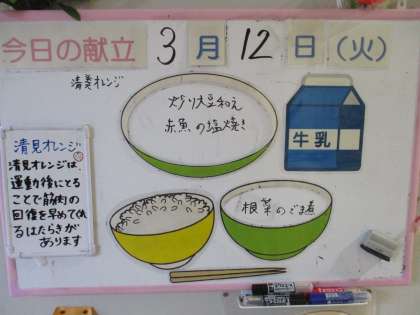 今日の献立 3月12日(火)
清美オレンジ
炒り大豆和え
赤魚の塩焼き
牛乳
清見オレンジ
清見オレンジは、
運動後にとる
ことで筋肉の
回復を早めてくれ
るはたらきが
あります
根菜のごま煮